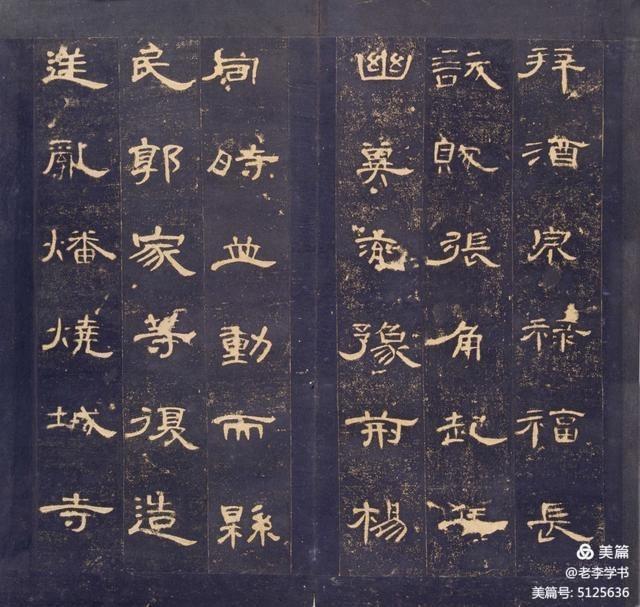 拜酒泉祿福長
訞賊張角起兵
幽冀兗豫荊楊
同時並動而縣
民郭家等復造
逆亂燔燒城寺
美篇
@老李学书
美篇号: 5125636